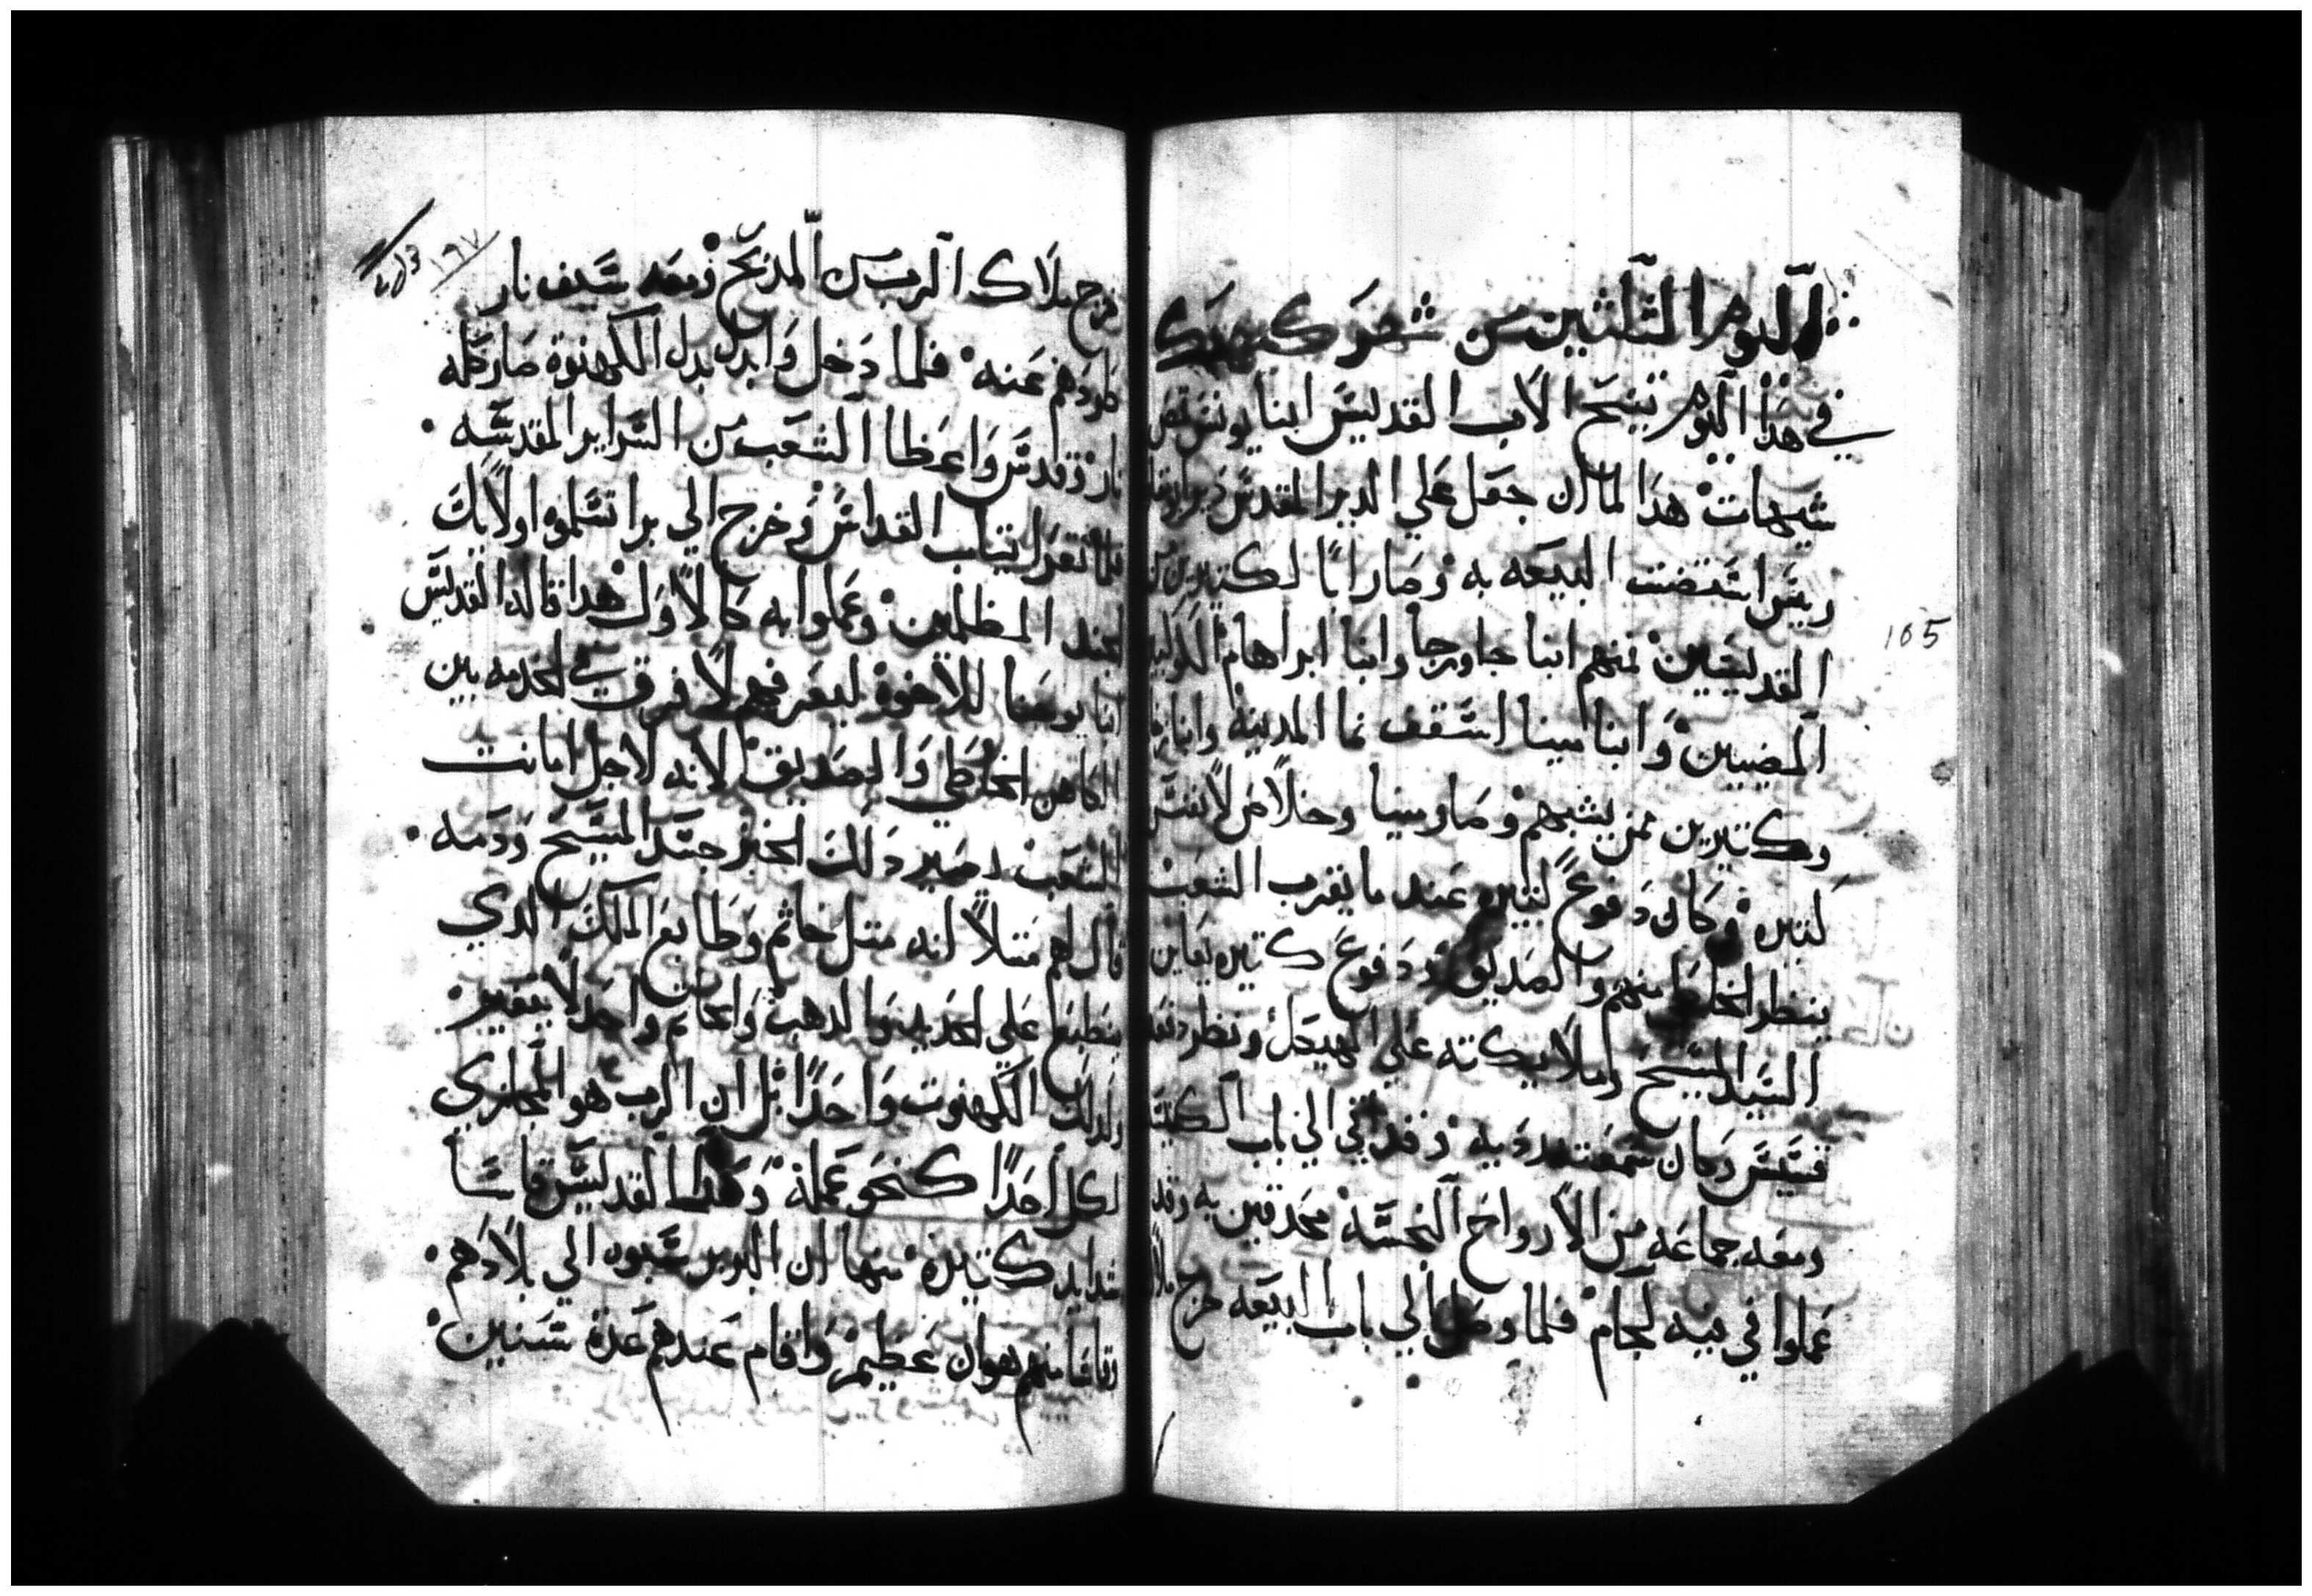 اليوم الثلثين من شهر كيهك
في هذا اليوم تنيح الاب القديس انبا يونس قمص
شيهات هذا لما ان جعل علي الدير المقدس دير ابو
ريس استضت البيعه به وصار ابًا لكتيرين من
القديسين منهم انبا جاورجا وانبا ابراهام الكوكبين
المضيين وانبا مينا اسقف تما المدينة وانبا
وكتيرين ممن يشبههم وصار مينا وخلاص لانفس
كتيره وكان دفوع كتيره عند ما يقرب الشعب
ينظر الخطاه منهم والصديق ودفوع كتيره يعاين
السيد المسيح وملايكته علي الهيكل ونظر دفعه
قسيس وكان سمعته رديه وقد اتي الي باب الكنيسه
ومعه جماعه من الارواح النجسه محدقين به وقد
عملوا في فيه لجام فلما وصل الي باب البيعه خرج ملاك
١٩٧
خرج ملاك الرب من المدبح ومعه سيف نار
طردهم عنه فلما دخل وابدل بدل الكهنوة صار كله
نار وقدس واعطا الشعب من السراير المقدسه
فلما تقرا تياب القداس وخرج الي برا تسلموه اولايك
الجند المظلمين وعملوا به كالاول هدا قاله القديس
انبا يوحنا للاخوة ليعرفهم لا فرق في الخدمه بين
الكاهن الخاطي والصديق لانه لاجل امانت
الشعب يصير دلك الخبز جسد المسيح ودمه
قال لهم متلًا انه متل خاتم وطابع الملك الدي
ينطبع علي الحديد والدهب والخاتم واحد لا يتغير
ولدلك الكهنوت واحدًا بل ان الرب هو المجازي
لكل احدًا كنحو عمله وهدا القديس قاسا
شدايد كتيرة منها ان البربر سبوه الي بلادهم
وقاسا منهم هوان عظيم واقام عندهم عدة سنين
165